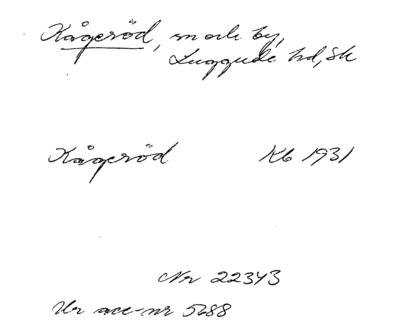 Kågeröd, sn och by,
Luggude hd, Sk
Kågeröd Kb 1931
Nr 22343
Ur acc-nr 5688